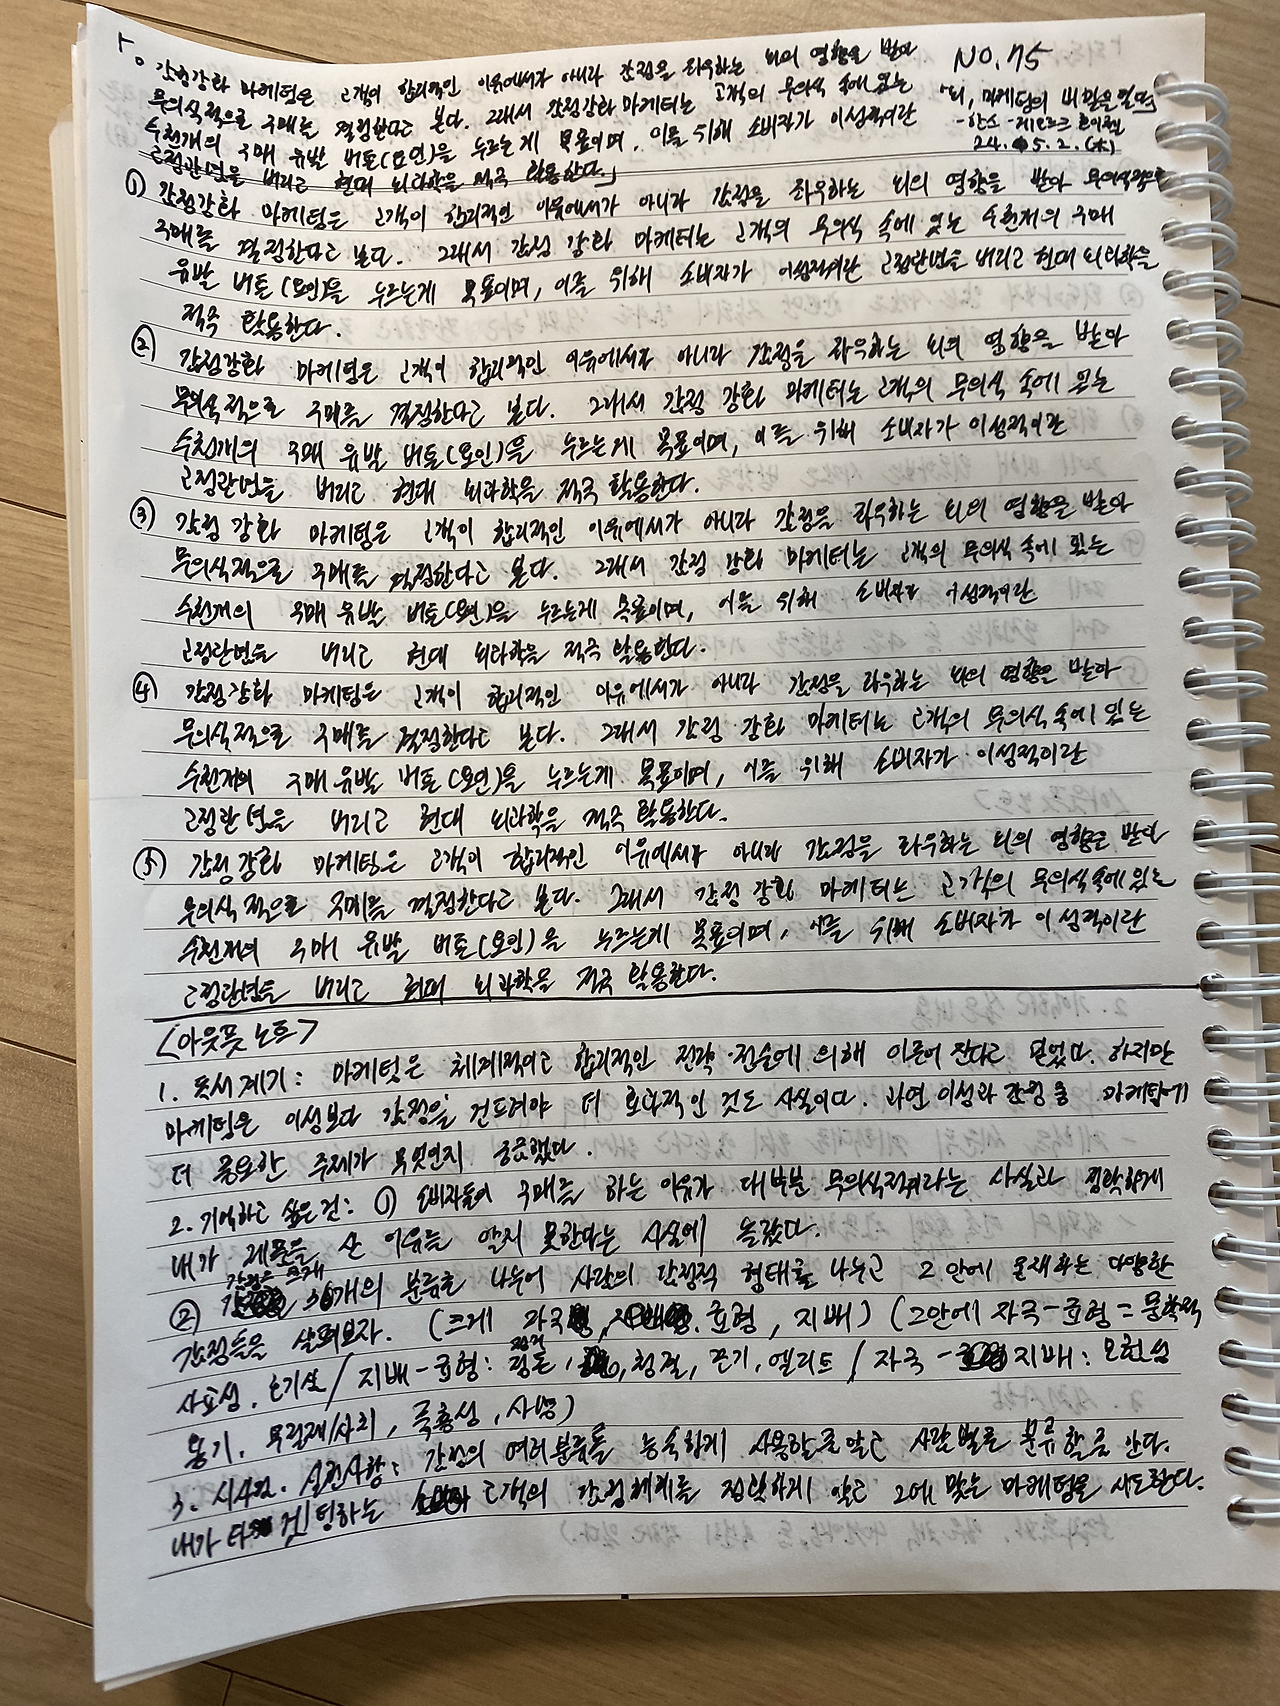 「。감정강화 마케팅은 고객이 합리적인 이유에서가 아니라 감정을 좌우하는 뇌의 영향을 받아
NO.75
무의식적으로 구매를 결정한다고 본다. 그래서 감정강화 마케터는 고객의 무의식 속에 있는
「뇌, 마케팅의 비밀을 열다」
수천개의 구매 유발 버튼(요인)을 누르는게 목표이며, 이를 위해 소비자가 이성적이란
-한스-게오르크 호이젤
고정관념을 버리고 현대 뇌과학을 적극 활용한다.」
24. 05. 2. (木)
① 감정강화 마케팅은 고객이 합리적인 이유에서가 아니라 감정을 좌우하는 뇌의 영향을 받아 무의식적으로
구매를 결정한다고 본다. 그래서 감정 강화 마케터는 고객의 무의식 속에 있는 수천개의 구매
유발 버튼(요인)을 누르는게 목표이며, 이를 위해 소비자가 이성적이란 고정관념을 버리고 현대 뇌과학을
적극 활용한다.
② 감정강화 마케팅은 고객이 합리적인 이유에서가 아니라 감정을 좌우하는 뇌의 영향을 받아
무의식적으로 구매를 결정한다고 본다. 그래서 감정 강화 마케터는 고객의 무의식 속에 있는
수천개의 구매 유발 버튼(요인)을 누르는게 목표이며, 이를 위해 소비자가 이성적이란
고정관념을 버리고 현대 뇌과학을 적극 활용한다.
③ 감정 강화 마케팅은 고객이 합리적인 이유에서가 아니라 감정을 좌우하는 뇌의 영향을 받아
무의식적으로 구매를 결정한다고 본다. 그래서 감정 강화 마케터는 고객의 무의식 속에 있는
수천개의 구매 유발 버튼(요인)을 누르는게 목표이며, 이를 위해 소비자가 이성적이란
고정관념을 버리고 현대 뇌과학을 적극 활용한다.
④ 감정강화 마케팅은 고객이 합리적인 이유에서가 아니라 감정을 좌우하는 뇌의 영향을 받아
무의식적으로 구매를 결정한다고 본다. 그래서 감정 강화 마케터는 고객의 무의식 속에 있는
수천개의 구매 유발 버튼(요인)을 누르는게 목표이며, 이를 위해 소비자가 이성적이란
고정관념을 버리고 현대 뇌과학을 적극 활용한다.
⑤ 감정 강화 마케팅은 고객이 합리적인 이유에서가 아니라 감정을 좌우하는 뇌의 영향을 받아
무의식적으로 구매를 결정한다고 본다. 그래서 감정 강화 마케터는 고객의 무의식 속에 있는
수천개의 구매 유발 버튼(요인)을 누르는게 목표이며, 이를 위해 소비자가 이성적이란
고정관념을 버리고 현대 뇌과학을 적극 활용한다.
<아웃풋 노트>
1. 문제 제기: 마케팅은 체계적이고 합리적인 전략·전술에 의해 이루어 진다고 믿었다. 하지만
마케팅은 이성보다 감정을 건드려야 더 효과적인 것도 사실이다. 과연 이성과 감정 중 마케팅에
더 중요한 주제가 무엇인지 궁금했다.
2. 기억하고 싶은 것: ① 소비자들이 구매를 하는 이유가 대부분 무의식적이라는 사실과 정확하게
내가 제품을 산 이유를 알지 못한다는 사실에 놀랐다.
② 36개의 분류로 나누어 사람의 감정적 형태를 나누고 그 안에 존재하는 다양한
감정들을 살펴보자. (크게 자극, 균형, 지배) (그안에 자극-균형 = 문학적
사고성, 호기심 / 지배-균형: 정돈, 청결, 끈기, 엘리트 / 자극-지배: 모험심
용기, 무질제/사치, 즉흥성, 사냥)
3. 시사점, 실천사항: 감정의 여러분류를 능숙하게 사용할 줄 알고 사람별로 분류할 줄 안다.
내가 타겟팅하는 고객의 감정체계를 정확하게 알고 그에 맞는 마케팅을 시도한다.